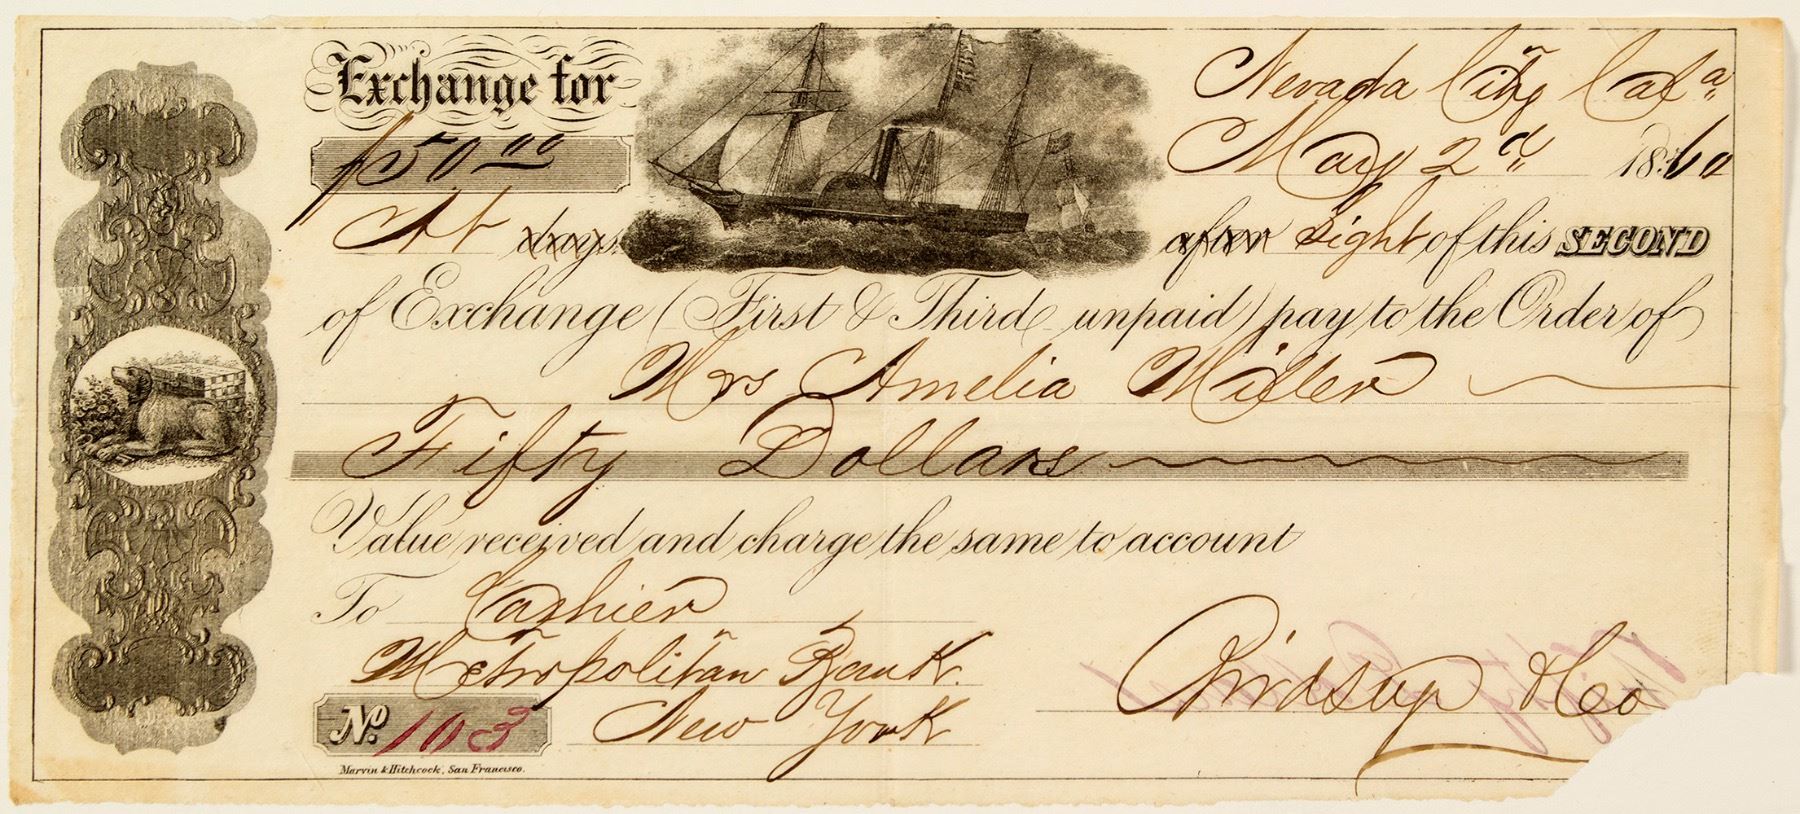 Exchange for
$50 00
Nevada City Cala
May 2d 1860
At days after sight of this SECOND
of Exchange (First & Third unpaid) pay to the Order of
Mrs Amelia Miller
Fifty Dollars
Value received and charge the same to account
To Cashier
Metropolitan Bank.
New York
& Co
No. 103
Marvin & Hitchcock, San Francisco.